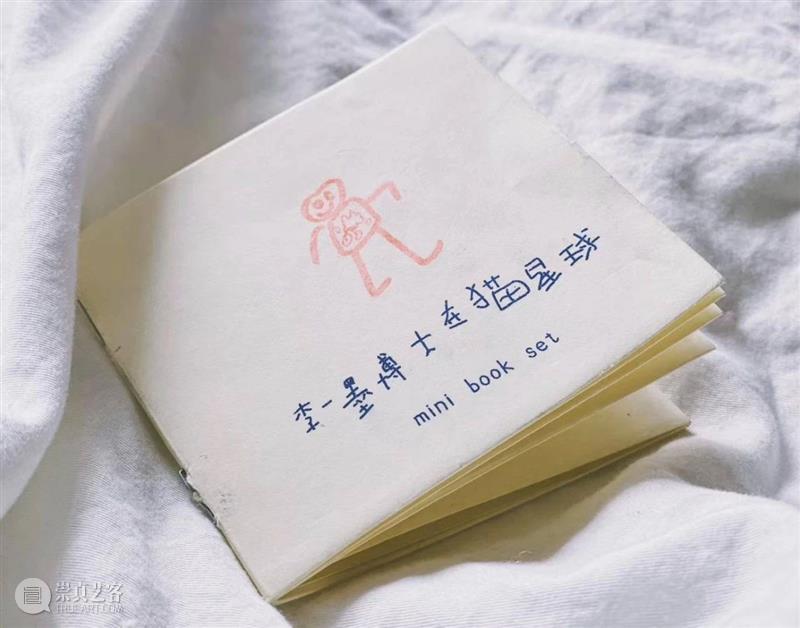 李一墨博士在猫星球
mini book set
崇真艺客
TRUEART.COM